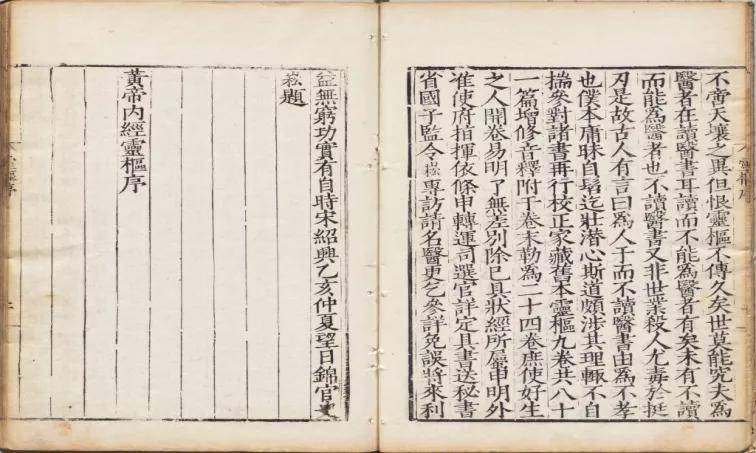 不啻天壤之異但恨靈樞不傳久矣世莫能究夫爲
醫者在讀醫書耳讀而不能爲醫者有矣未有不讀
而能爲醫者也不讀醫書又非世業殺人尤毒於挺
刃是故古人有言曰爲人子而不讀醫書由爲不孝
也僕本庸昧自髫迄壯潛心斯道頗涉其理輒不自
揣參對諸書再行校正家藏舊本靈樞九卷共八十
一篇增修音釋附于卷末勒爲二十四卷庶使好生
之人開卷易明了無差別除已具狀經所屬申明外
准使府指揮依條申轉運司選官詳定具書送秘書
省國子監令崧專訪請名醫更乞參詳免誤將來利
益無窮功實有自時宋紹興乙亥仲夏望日錦官史
崧題
黃帝內經靈樞序